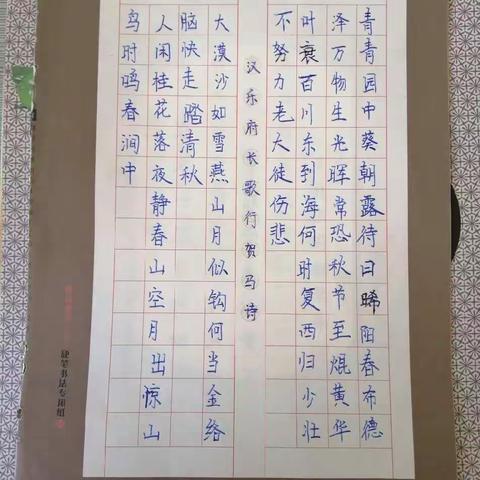 青青园中葵朝露待日晞阳春布德
泽万物生光晖常恐秋节至焜黄华
叶衰百川东到海何时复西归少壮
不努力老大徒伤悲
汉乐府长歌行贺马诗
大漠沙如雪燕山月似钩何当金络
脑快走踏清秋
人闲桂花落夜静春山空月出惊山
鸟时鸣春涧中
硬笔书法专用纸